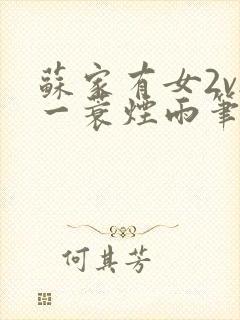 蘇家有女2v
一蓑煙雨筆
何其芳